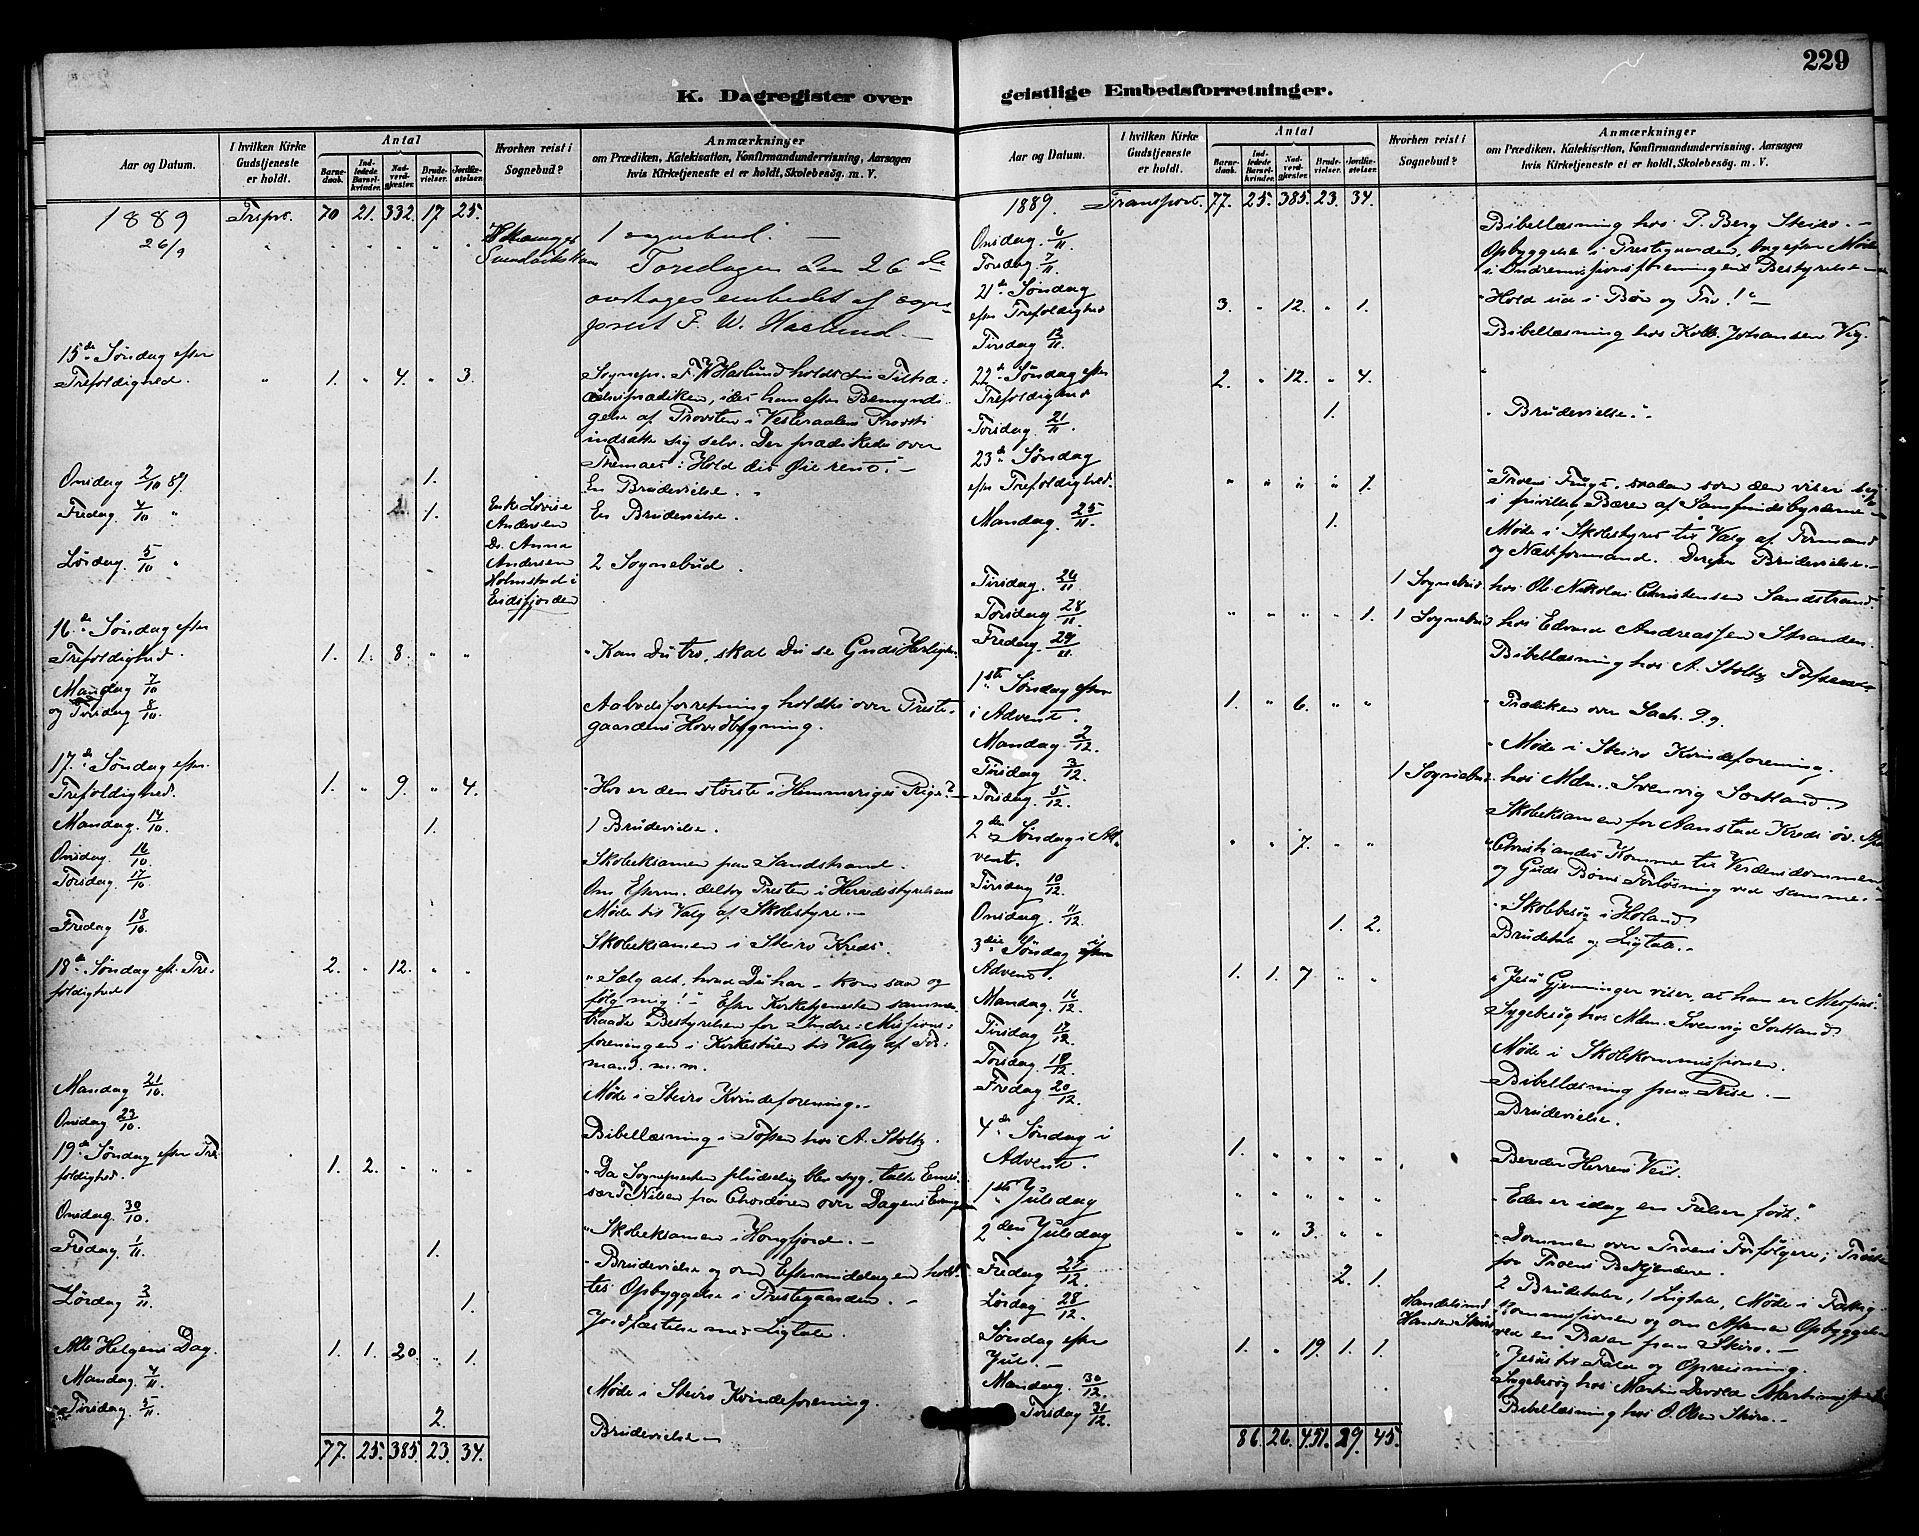 229
K. Dagregister over geistlige Embedsforretninger.
Aar og Datum.
I hvilken Kirke Gudstjeneste er holdt.
Antal
Barnedaab.
Indledede Barselkvinder.
Nadverdgjester.
Brudevielser.
Jordfæstelser.
Hvorhen reist i Sognebud?
Anmærkninger
om Prædiken, Katekisation, Konfirmandundervisning, Aarsagen
hvis Kirketjeneste ei er holdt, Skolebesøg. m. V.
1889 Trspt. 70 21. 332. 17. 25.
26/9 1 sognebud. —
Torsdagen den 26de
overtages embedet af sogne-
prest F. W. Haslund. —
15de Søndag efter
Trefoldighed. 1. 4. 3. Sognepr. F. W. Haslund holdt sin Tiltræ-
delsesprædiken, idet han efter Bemyndi-
gelse af Provsten i Vesteraalens Provsti
indsatte sig selv. Der prædikede over
Themaet: Hold dit Øie rent. —
Onsdag 2/10 89. 1. En Brudevielse.
Fredag 4/10 " 1. Enke Lovise En Brudevielse.
Andersen
Do. Anna
Lørdag 5/10 " Andersen 2 Sognebud.
Holmstad i
Eidsfjorden
16de Søndag efter
Trefoldighed. 1. 1. 8. " " "Kan Du tro, skal Du se Guds Herlighed.
Mandag 7/10
og Tirsdag 8/10. Aabodsforretning holdtes over Preste-
gaardens Hovedbygning.
17de Søndag efter
Trefoldighed. 1. " 9. " 4. "Hvo er den største i Himmeriges Rige?" —
Mandag 14/10. 1. 1 Brudevielse.
Onsdag 16/10. Skoleeksamen paa Sandstrand.
Torsdag 17/10. Om Efterm. deltog Presten i Herredsstyrelsens
Møde til Valg af Skolestyre. —
Fredag 18/10. Skoleeksamen i Skiro Kreds.
18de Søndag eft. Tre-
foldighed 2. " 12. " " "Sælg alt, hvad Du har — kom saa og
følg mig!" — Efter Kirketjenesten sammen-
traadte Bestyrelsen for Indre-Missions-
foreningen i Kirkestuen til Valg af For-
mand m. m.
Mandag 21/10. Møde i Skiro Kvindeforening. —
Onsdag 23/10. Bibellæsning i Tofsen hos A. Stoltz.
19de Søndag efter Tre-
foldighed. 1. 2. " " " "Da Sognepresten pludselig blev syg, talte Emis-
sær T. Nilsen fra over Dagens Evang.
Onsdag 30/10. Skoleeksamen i Hongfjord. —
Fredag 1/11. 1. Brudevielse og om Eftermiddagen hold-
tes Opbyggelse i Prestegaarden. —
Lørdag 2/11. 1. Jordfæstelse med Ligtale.
Alle Helgens Dag. 1. 1. 20. " 1.
Mandag 4/11. Møde i Skiro Kvindeforening.
Tirsdag 5/11. 2. Brudevielse —
77. 25. 385. 23. 34.
Aar og Datum.
I hvilken Kirke Gudstjeneste er holdt.
Antal
Barnedaab.
Indledede Barselkvinder.
Nadverdgjester.
Brudevielser.
Jordfæstelser.
Hvorhen reist i Sognebud?
Anmærkninger
om Prædiken, Katekisation, Konfirmandundervisning, Aarsagen
hvis Kirketjeneste ei er holdt, Skolebesøg. m. V.
1889. Transport. 77. 25. 385. 23. 34.
Onsdag 6/11 Bibellæsning hos P. Berg Skiro. —
Torsdag 7/11 Opbyggelse i Prestegaarden, Møde
i Indremissionsforeningens Bestyrelse —
21de Søndag
efter Trefoldighed 3. " 12. " 1. "Hold ud i Bøn og Tro!" —
Tirsdag 12/11 Bibellæsning hos Johansen Vig.
22de Søndag efter
Trefoldighed 2. " 12. " 4. "
Torsdag 21/11. 1. "Brudevielse."
23de Søndag
eft. Trefoldighed. " " " " 1. "Troens Frugt, saadan som den viser sig
i frivillig Bæren af Samfundsbyrderne —
Mandag 25/11. 1. Møde i Skolestyret til Valg af Formand
og Næstformand. Derpaa Brudevielse. —
Tirsdag. 26/11 1 Sognebud hos Ole Nikolai Christensen Sandstrand.
Torsdag 28/11 " " " " 1. 1 Sognebud hos Edvard Andreassen Stranden.
Fredag 29/11 Bibellæsning hos A. Stoltz Tofsen —
1ste Søndag
i Advent. 1. " 6. " " "Prædiken over Sach. 9,9.
Mandag 2/12. Møde i Skiro Kvindeforening.
Tirsdag 3/12. 1 Sognebud hos Mdm. Svensvig Sortland.
Torsdag 5/12. Skoleeksamen for Aanstad Kreds
2den Søndag i Ad-
vent. " " 7. " " "Christi andet Komme til Verdensdommen
og Guds Børns Forløsning ved samme. —
Tirsdag 10/12 Skolebesøg i Holand
Onsdag. 11/12 1. 2. Brudetale og Ligtale. —
3die Søndag i
Advent 1. 1. 7 " " "Jesu Gjerninger viser, at han er Messias."
Mandag. 16/12 Sygebesøg hos Mdm. Svensvig Sortland.
Tirsdag 17/12. Møde i Skolekommissionen.
Torsdag 19/12. Bibellæsning paa Rise. —
Fredag 20/12. Brudevielse.
4de Søndag i
Advent. 1. " " " " Bered Herrens Vei.
1ste Juledag " " " " " "Eder er idag en Frelser født."
2den Juledag " " 3. " " "Dommen over Troens Forfølgere; Trøst
for Troens Bekjendere.
Fredag 27/12. 2. 1. 2 Brudetaler, 1 Ligtale, Møde i Fattig-
Lørdag 28/12. Handelsmd. Hansen Skiro kommissionen og om Aftenen Opbyggelse
ved en Basar paa Skiro. —
Søndag efter
Jul. — 1. " 19. 1. 1. "Jesus til Fald og Opreisning.
Mandag 30/12. Sygebesøg hos Martin
Tirsdag 31/12. Bibellæsning hos O. Olsen Skiro. —
86. 26. 451. 29. 45.